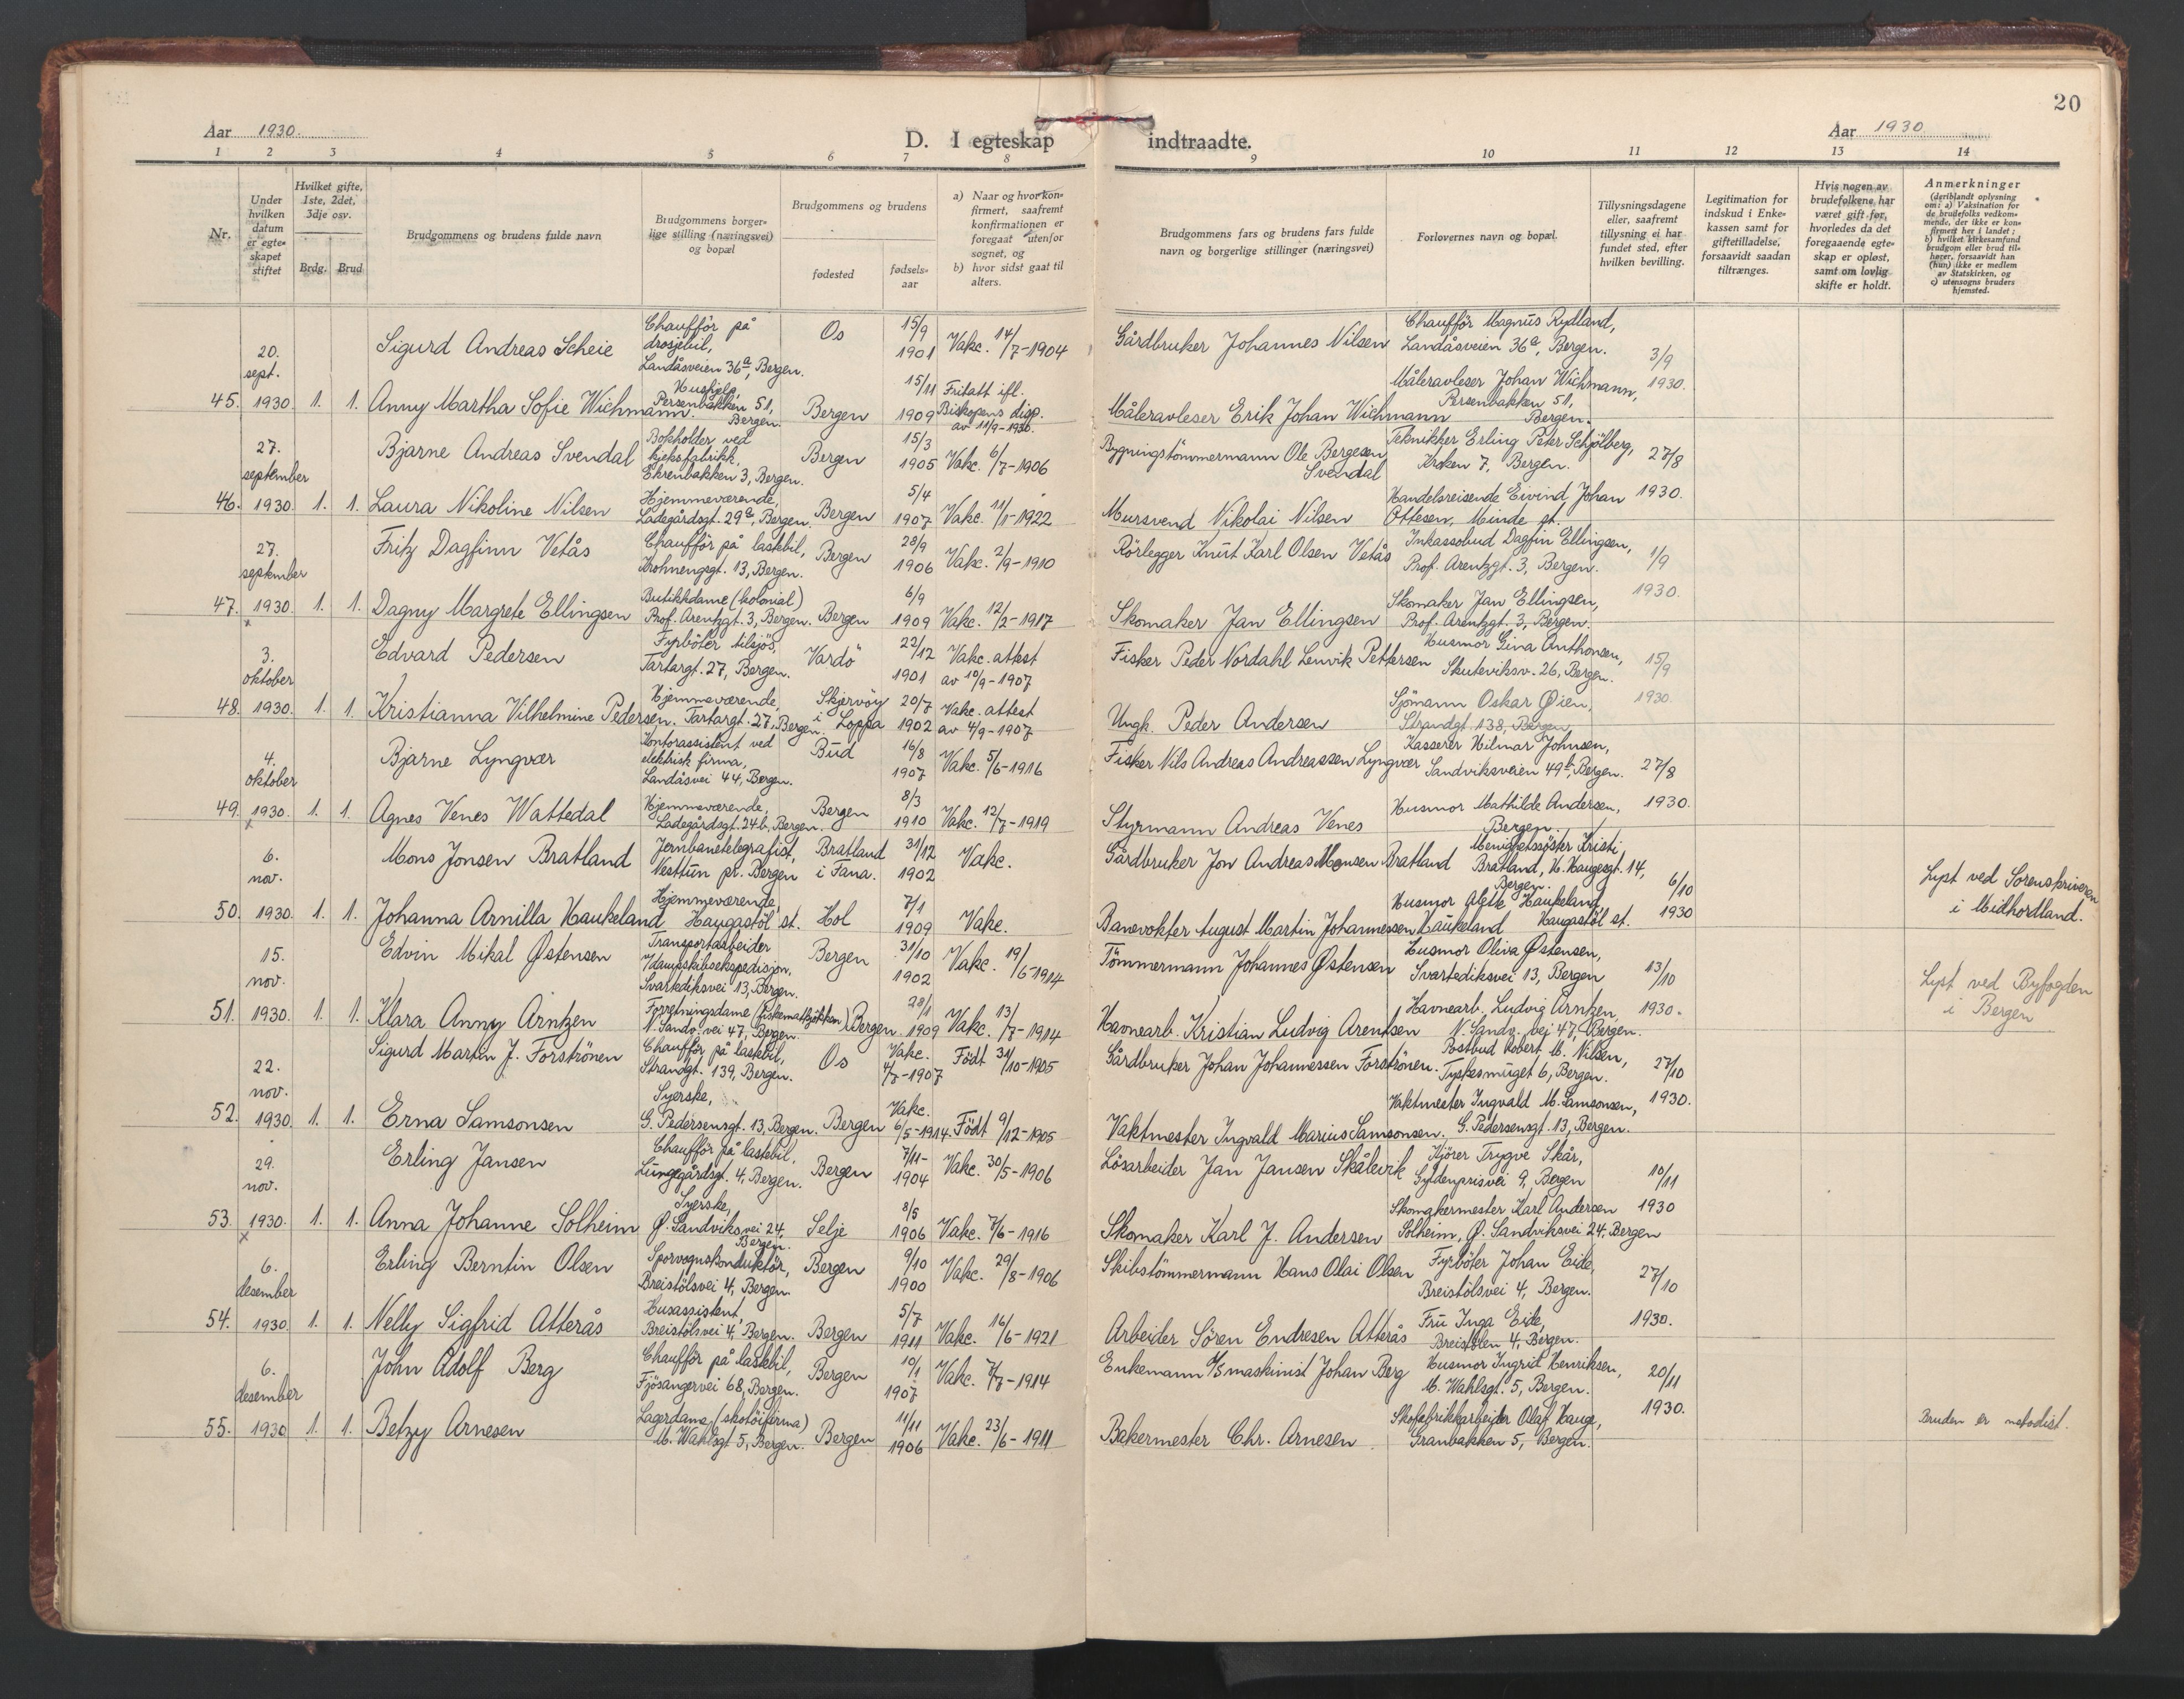 20
Aar 1930.
D. I egteskap indtraadte.
Aar 1930
1 2 3 4 5 6 7 8 9 10 11 12 13 14
Nr.
Under hvilken datum er egteskapet stiftet
Hvilket gifte, 1ste, 2det, 3dje osv.
Brdg. Brud
Brudgommens og brudens fulde navn
Brudgommens borgerlige stilling (næringsvei) og bopæl
Brudgommens og brudens
fødested
fødselsaar
a) Naar og hvor konfirmert, saafremt konfirmationen er foregaat utenfor sognet, og
b) hvor sidst gaat til alters.
Brudgommens fars og brudens fars fulde navn og borgerlige stillinger (næringsvei)
Forlovernes navn og bopæl.
Tillysningsdagene eller, saafremt tillysning ei har fundet sted, efter hvilken bevilling.
Legitimation for indskud i Enkekassen samt for giftetilladelse, forsaavidt saadan tiltrænges.
Hvis nogen av brudefolkene har været gift før, hvorledes da det foregaaende egteskap er opløst, samt om lovlig skifte er holdt.
Anmerkninger (deriblandt oplysning om: a) Vaksination for de brudefolks vedkommende, der ikke er konfirmert her i landet; b) hvilket kirkesamfund brudgom eller brud tilhører, forsaavidt han (hun) ikke er medlem av Statskirken, og c) utensogns bruders hjemsted.
45. 20. sept. 1930 1. 1.
Sigurd Andreas Scheie
Chauffør på drosjebil, Landåsveien 36a, Bergen.
Os 15/9 1901 Vakc. 14/7-1904
Gårdbruker Johannes Nilsen
Chauffør Magnus Rydland, Landåsveien 36a, Bergen.
3/9 1930.
Anny Martha Sofie Wichmann.
Hushjelp, Persenbakken 51, Bergen.
Bergen 15/11 1909 Fritatt ifl. Biskopens disp. av 11/9-1930.
Måleravleser Erik Johan Wichmann
Måleravleser Johan Wichmann, Persenbakken 51, Bergen.
46. 27. september 1930. 1. 1.
Bjarne Andreas Svendal
Bokholder ved kjeksfabrikk, Ehrenbakken 3, Bergen.
Bergen 15/3 1905 Vakc. 6/7-1906
Bygningstömmermann Ole Bergesen Svendal
Teknikker Erling Peter Schjölberg, Kroken 7, Bergen.
27/8 1930.
Laura Nikoline Nilsen
Hjemmeværende, Ladegårdsgt. 29a, Bergen.
Bergen 5/4 1907 Vakc. 11/1-1922
Mursvend Nikolai Nilsen
Handelsreisende Eivind Johan Ottesen, Minde st.
47. 27. september 1930. 1. 1.
x
Fritz Dagfinn Vetås
Chauffør på lastebil, Krohnengsgt. 13, Bergen.
Bergen 28/9 1906 Vakc. 2/9-1910
Rörlegger Knut Karl Olsen Vetås
Inkassobud Dagfin Ellingsen, Prof. Arentzgt. 3, Bergen.
1/9 1930.
Dagny Margrete Ellingsen
Butikkdame (kolonial) Prof. Arentzgt. 3, Bergen.
Bergen 6/9 1909 Vakc. 12/2-1917
Skomaker Jan Ellingsen
Skomaker Jan Ellingsen, Prof. Arentzgt. 3, Bergen.
48. 3. oktober 1930. 1. 1.
Edvard Pedersen
Fyrböter tilsjös, Tartargt. 27, Bergen.
Vardö 22/12 1901 Vakc. attest av 10/9-1907
Fisker Peder Nordahl Lenvik Pettersen
Husmor Gina Anthonsen, Skuteviksv. 26, Bergen.
15/9 1930.
Kristianna Vilhelmine Pedersen.
Hjemmeværende, Tartargt. 27, Bergen.
Skjervöy i Loppa 20/7 1902 Vakc. attest av 4/9-1907
Ungk. Peder Andersen
Sjömann Oskar Øien, Strandgt. 138, Bergen
49. 4. oktober 1930. 1. 1.
x
Bjarne Lyngvær
Kontorassistent ved elektrisk firma, Landåsvei 44, Bergen.
Bud 16/8 1907 Vakc. 5/6-1916
Fisker Nils Andreas Andreassen Lyngvær
Kasserer Hilmar Johnsen, Sandviksveien 49b, Bergen.
27/8 1930.
Agnes Venes Wattedal
Hjemmeværende, Ladegårdsgt. 24b, Bergen.
Bergen 8/3 1910 Vakc. 12/7-1919
Styrmann Andreas Venes
Husmor Mathilde Andersen, Bergen.
50. 6. nov. 1930. 1. 1.
Mons Jonsen Bratland
Jernbanetelegrafist, Nesttun pr. Bergen
Bratland i Fana. 31/12 1902 Vakc.
Gårdbruker Jon Andreas Monsen Bratland
Menighetssöster Kristi Bratland, H. Haugesgt. 14, Bergen.
6/10 1930
Lyst ved Sorenskriveren i Midhordland.
Johanna Arnilla Haukeland
Hjemmeværende, Haugastöl st.
Hol 7/1 1909 Vakc.
Banevokter August Martin Johannessen Haukeland
Husmor Alette Haukeland, Haugastöl st.
51. 15. nov. 1930. 1. 1.
Edvin Mikal Østensen
Transportarbeider v/dampskibsekspedisjon. Svartediksvei 13, Bergen.
Bergen 31/10 1902 Vakc. 19/6-1914
Tömmermann Johannes Østensen
Husmor Oliva Østensen, Svartediksvei 13, Bergen
13/10 1930.
Lyst ved Byfogden i Bergen
Klara Anny Arntzen
Forretningsdame (fiskematkjökken) N. Sandv. vei 47, Bergen.
Bergen 28/1 1909 Vakc. 13/7-1914
Havnearb. Kristian Ludvig Arentsen
Havnearb. Ludvig Arntzen, N. Sandv. vei 47, Bergen.
52. 22. nov. 1930. 1. 1.
Sigurd Martin J. Forströnen
Chauffør på lastebil, Strandgt. 139, Bergen.
Os Vakc. 4/7-1907 Födt 31/10-1905
Gårdbruker Johan Johannessen Forströnen.
Postbud Robert M. Nilsen, Tyskesmuget 6, Bergen.
27/10 1930.
Erna Samsonsen
Syerske, G. Pedersensgt. 13, Bergen.
Bergen Vakc. 6/5-1914. Födt 9/12-1905
Vaktmester Ingvald Marius Samsonsen.
Vaktmester Ingvald M. Samsonsen, G. Pedersensgt. 13, Bergen.
53. 29. nov. 1930. 1. 1.
x
Erling Jansen
Chauffør på lastebil, Lungegårdsgt. 4, Bergen.
Bergen 7/11- 1904 Vakc. 30/5-1906
Lösarbeider Jan Jansen Skålevik
Kjörer Trygve Skår, Gyldenprisvei 9, Bergen
10/11 1930
Anna Johanne Solheim
Syerske, Ø. Sandviksvei 24, Bergen.
Selje 8/5 1906 Vakc. 7/6-1916
Skomaker Karl J. Andersen
Skomakermester Karl Andersen Solheim, Ø. Sandviksvei 24, Bergen
54. 6. desember 1930. 1. 1.
Erling Berntin Olsen
Sporvognskonduktör, Breistölsvei 4, Bergen.
Bergen 9/10 1900 Vakc. 29/8-1906
Skibstömmermann Hans Olai Olsen
Fyrböter Johan Eide, Breistölsvei 4, Bergen.
27/10 1930.
Nelly Sigfrid Atterås
Husassistent, Breistölsvei 4, Bergen.
Bergen 5/7 1911 Vakc. 16/6-1921
Arbeider Sören Endresen Atterås
Fru Inga Eide, Breistölen 4, Bergen.
55. 6. desember 1930 1. 1.
John Adolf Berg
Chauffør på lastebil, Fjösangervei 68, Bergen.
Bergen 10/1 1907 Vakc. 7/7-1914
Enkemann D/S maskinist Johan Berg
Husmor Ingrid Henriksen, M. Wahlsgt. 5, Bergen.
20/11 1930.
Betzy Arnesen
Lagerdame (skotöifirma) M. Wahlsgt. 5, Bergen.
Bergen 11/11 1906 Vakc. 23/6-1911
Bakermester Chr. Arnesen
Skofabrikkarbeider Olaf Hauge, Granbakken 5, Bergen.
Bruden er metodist.